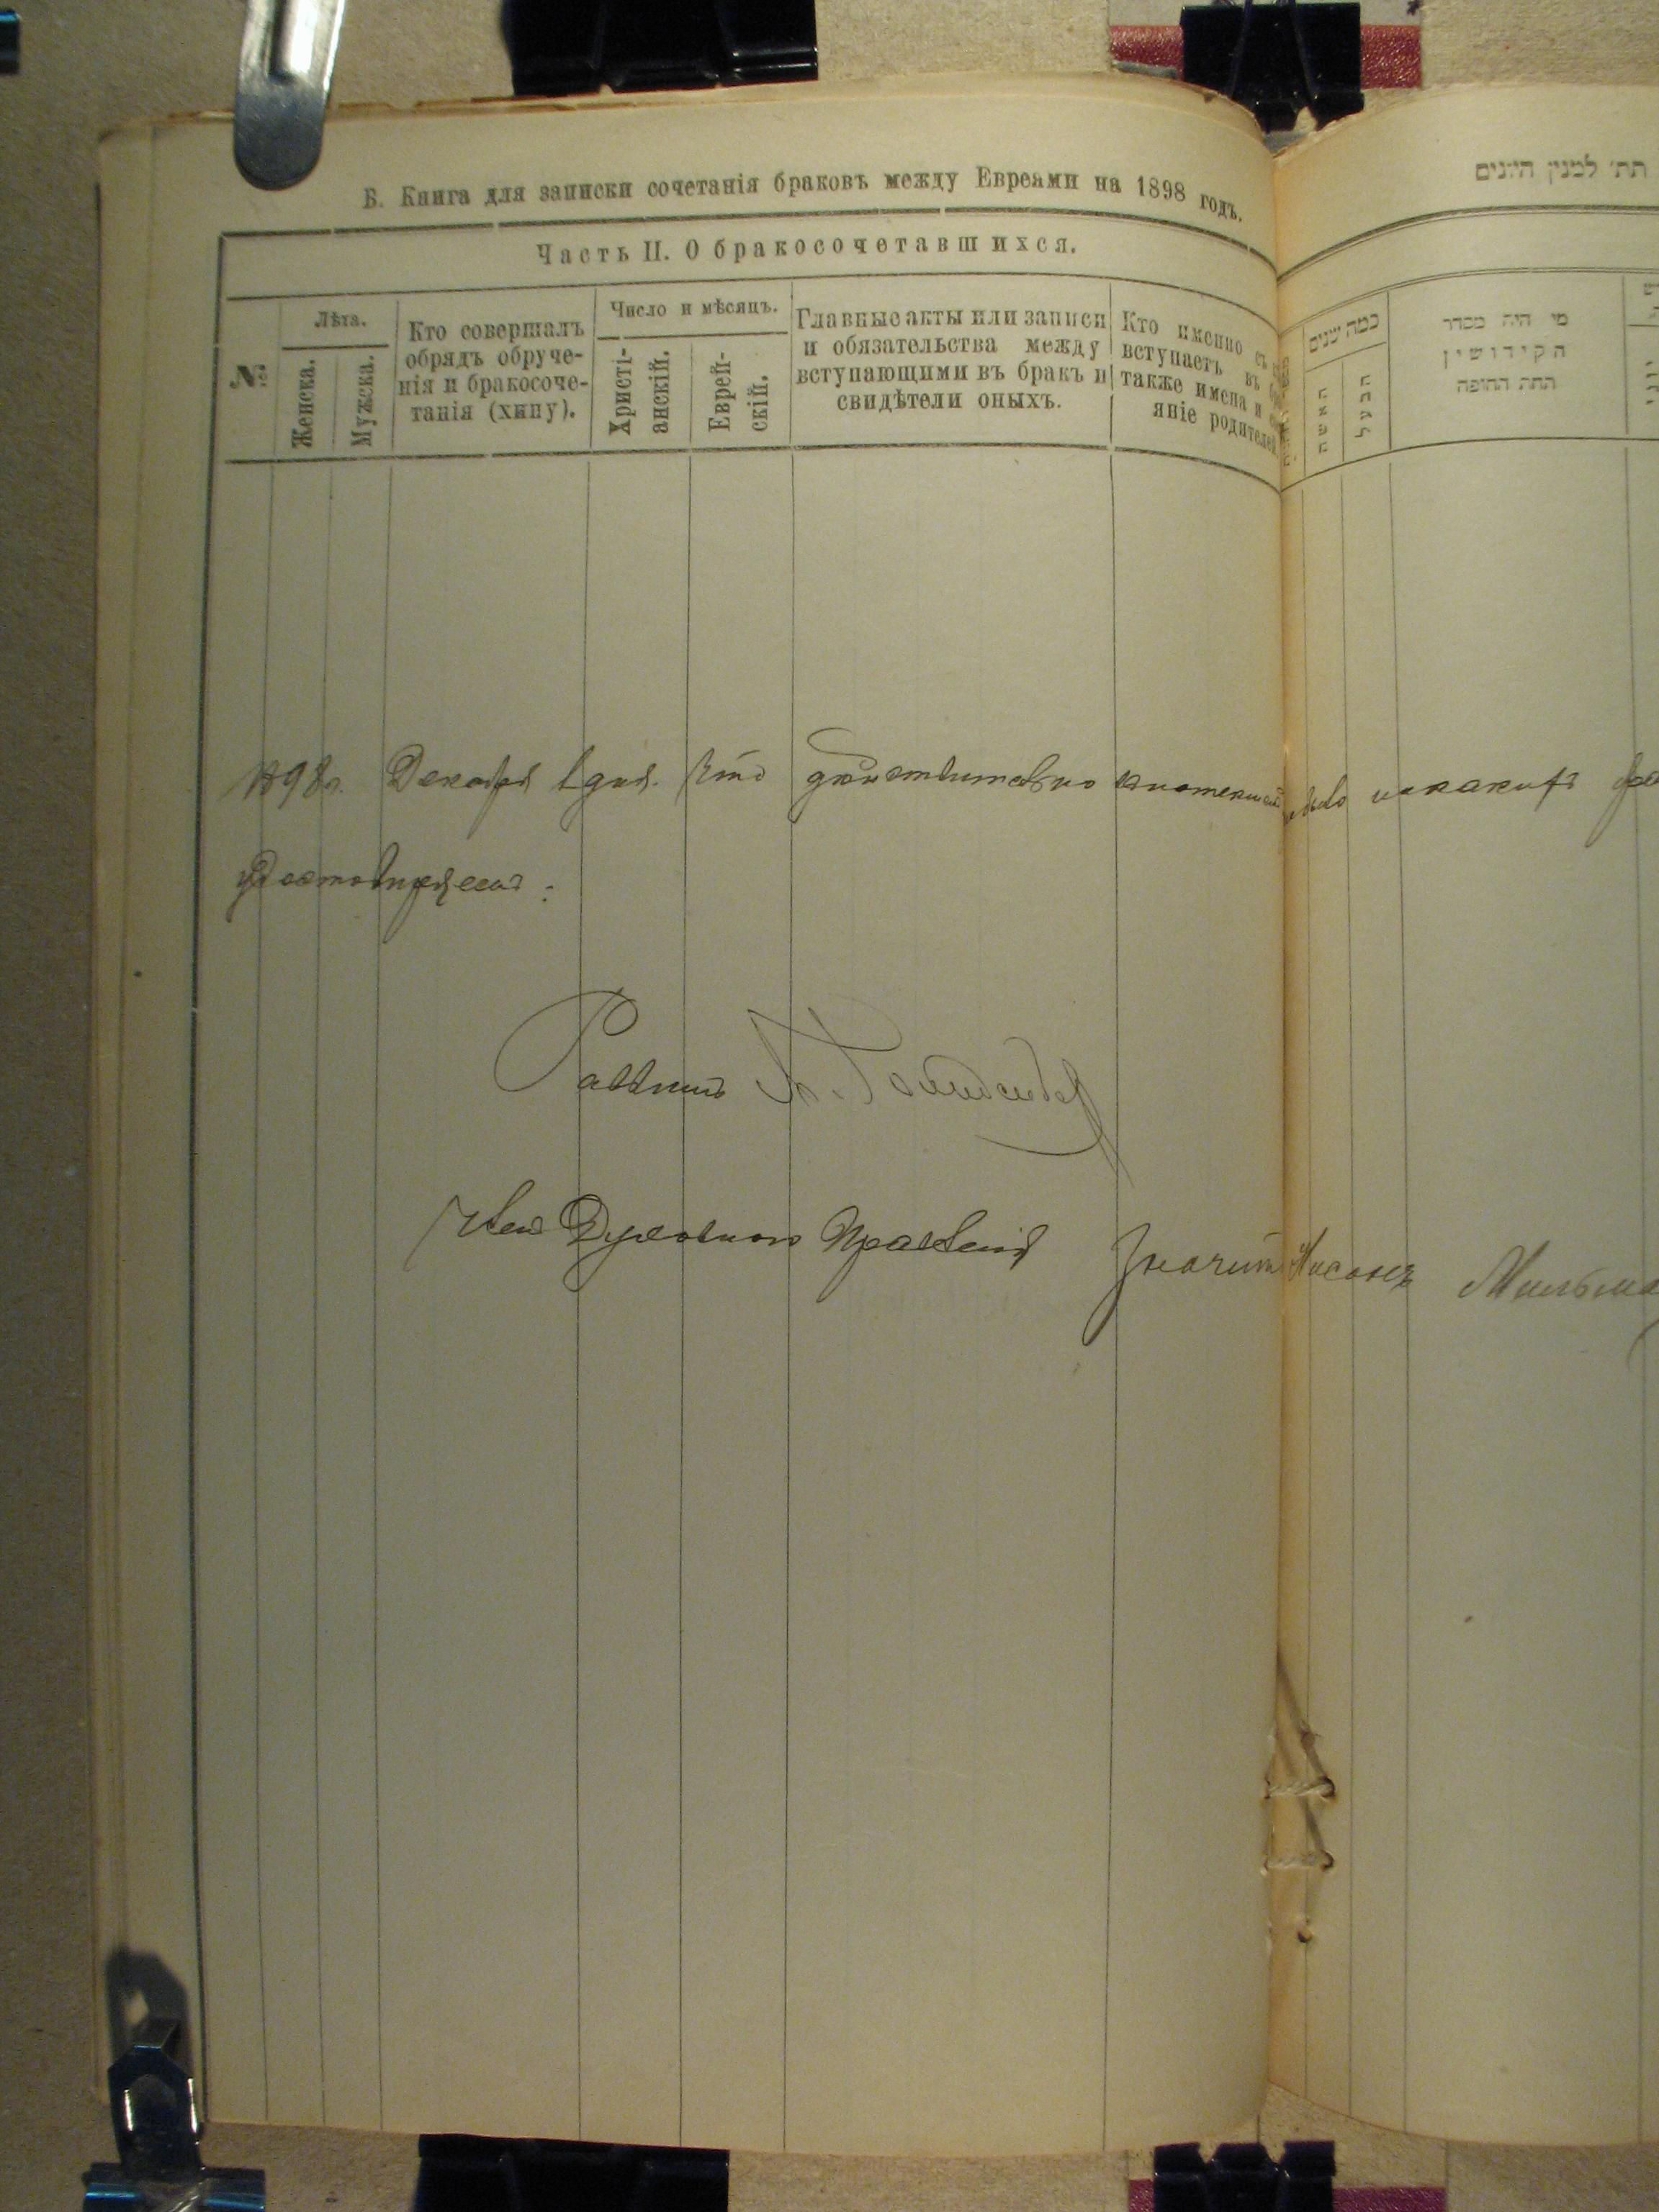 В. Книга для записки сочетанія браковъ между Евреями на 1898 годъ.
תת׳ למנין היונים
Часть II. О бракосочетавшихся.
№
Лѣта.
Женска.
Мужска.
Кто совершалъ
обрядъ обруче-
нія и бракосоче-
танія (хипу).
Число и мѣсяцъ.
Христі-
анскій.
Еврей-
скій.
Главные акты или записи
и обязательства между
вступающими въ бракъ и
свидѣтели оныхъ.
Кто именно съ
вступаетъ въ
также имена и
яніе родителей
כמה שנים
האשה
הבעל
מי היה מסדר
הקידושין
תחת החופה
1898 г. Декабря 1 дня. Что дѣйствительно никакихъ
удостовѣряемъ:
Раввинъ
Членъ Духовнаго Правленія